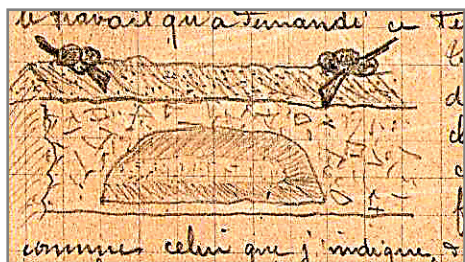 le travail qu'a demandé ce
comme celui que j'indique,